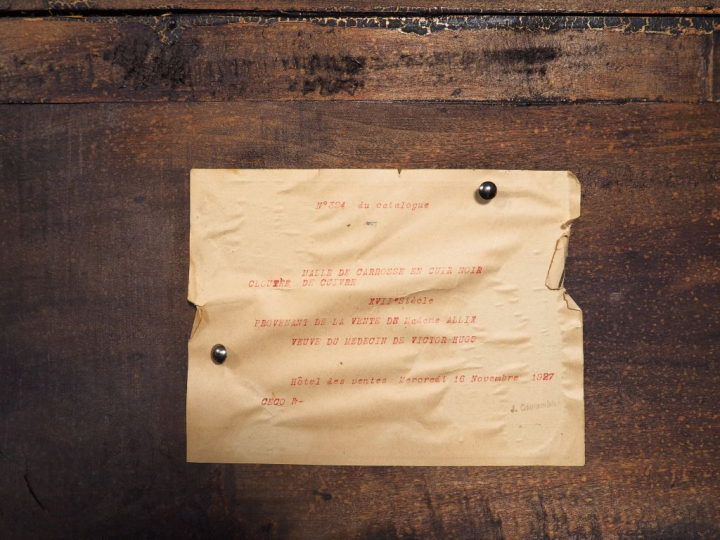 N°394 du catalogue
MALLE DE CARROSSE EN CUIR NOIR
CLOUTÉE DE CUIVRE
XVII°Siècle
PROVENANT DE LA VENTE DE Madame ALLIX
VEUVE DU MEDECIN DE VICTOR HUGO
Hôtel des ventes Mercredi 16 Novembre 1927
J.